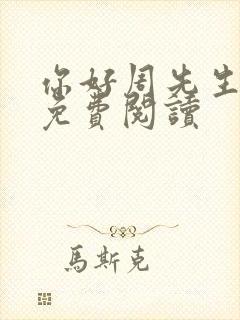 你好周先生
免費閱讀
馬斯克